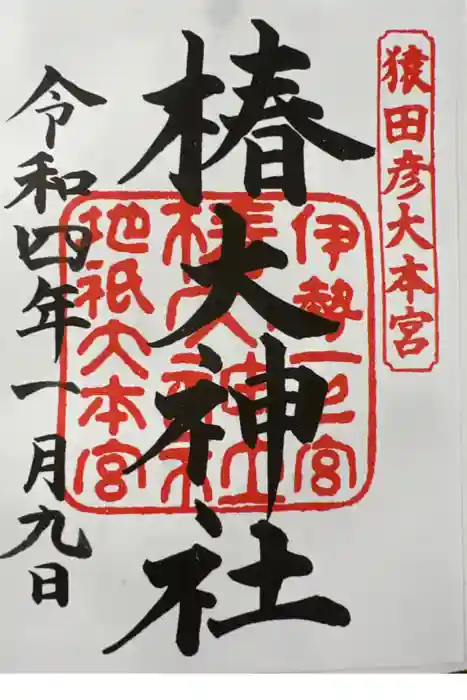 猿田彦大本宮
椿大神社
伊勢一之宮
椿大神社
地祇大本宮
令和四年一月九日